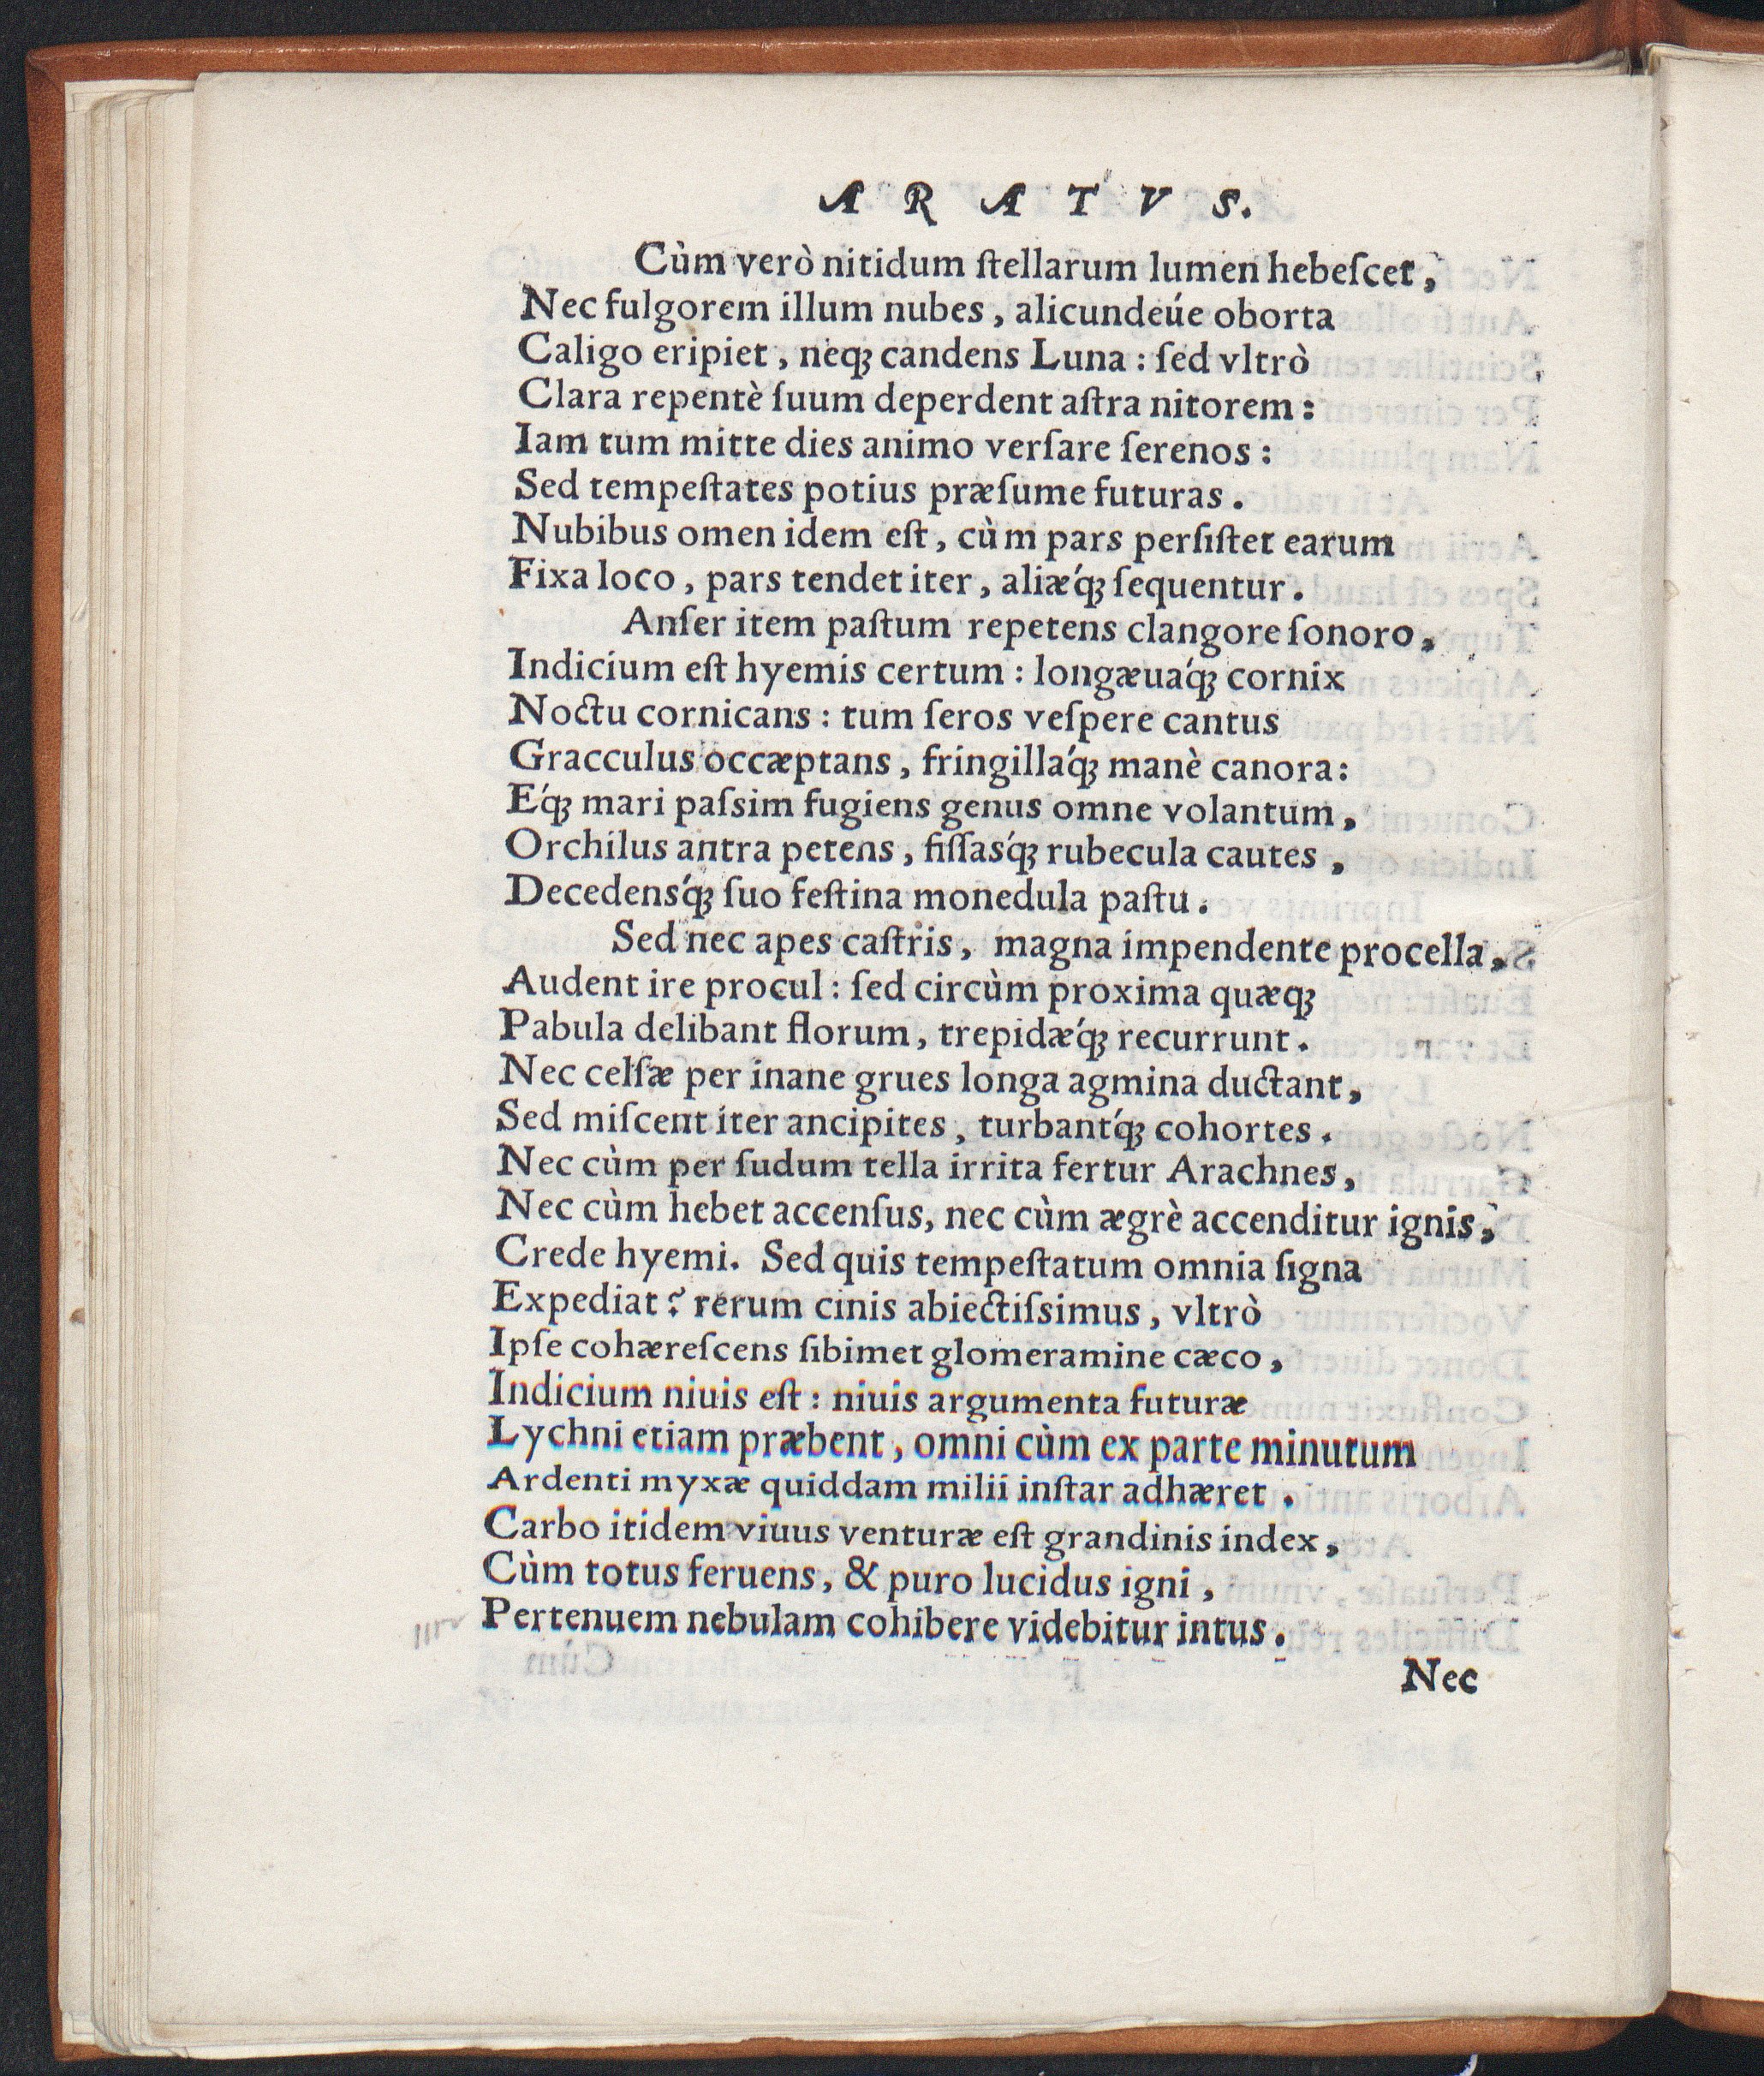 ARATVS.
Cùm verò nitidum ſtellarum lumen hebeſcet,
Nec fulgorem illum nubes, alicundeúe oborta
Caligo eripiet, neqꝫ candens Luna: ſed vltrò
Clara repentè ſuum deperdent aſtra nitorem:
Iam tum mitte dies animo verſare ſerenos:
Sed tempeſtates potius præſume futuras.
Nubibus omen idem eſt, cùm pars perſiſtet earum
Fixa loco, pars tendet iter, aliæq́ꝫ ſequentur.
Anſer item paſtum repetens clangore ſonoro,
Indicium eſt hyemis certum: longæuaq́ꝫ cornix
Noctu cornicans: tum ſeros veſpere cantus
Gracculus occæptans, fringillaq́ꝫ manè canora:
Eq́ꝫ mari paſsim fugiens genus omne volantum,
Orchilus antra petens, fiſſasq́ꝫ rubecula cautes,
Decedensq́ꝫ ſuo feſtina monedula paſtu.
Sed nec apes caſtris, magna impendente procella,
Audent ire procul: ſed circùm proxima quæqꝫ
Pabula delibant florum, trepidæq́ꝫ recurrunt.
Nec celſæ per inane grues longa agmina ductant,
Sed miſcent iter ancipites, turbantq́ꝫ cohortes.
Nec cùm per ſudum tella irrita fertur Arachnes,
Nec cùm hebet accenſus, nec cùm ægrè accenditur ignis,
Crede hyemi. Sed quis tempeſtatum omnia ſigna
Expediat? rerum cinis abiectiſsimus, vltrò
Ipſe cohæreſcens ſibimet glomeramine cæco,
Indicium niuis eſt: niuis argumenta futuræ
Lychni etiam præbent, omni cùm ex parte minutum
Ardenti myxæ quiddam milii inſtar adhæret.
Carbo itidem viuus venturæ eſt grandinis index,
Cùm totus feruens, & puro lucidus igni,
Pertenuem nebulam cohibere videbitur intus.
Nec